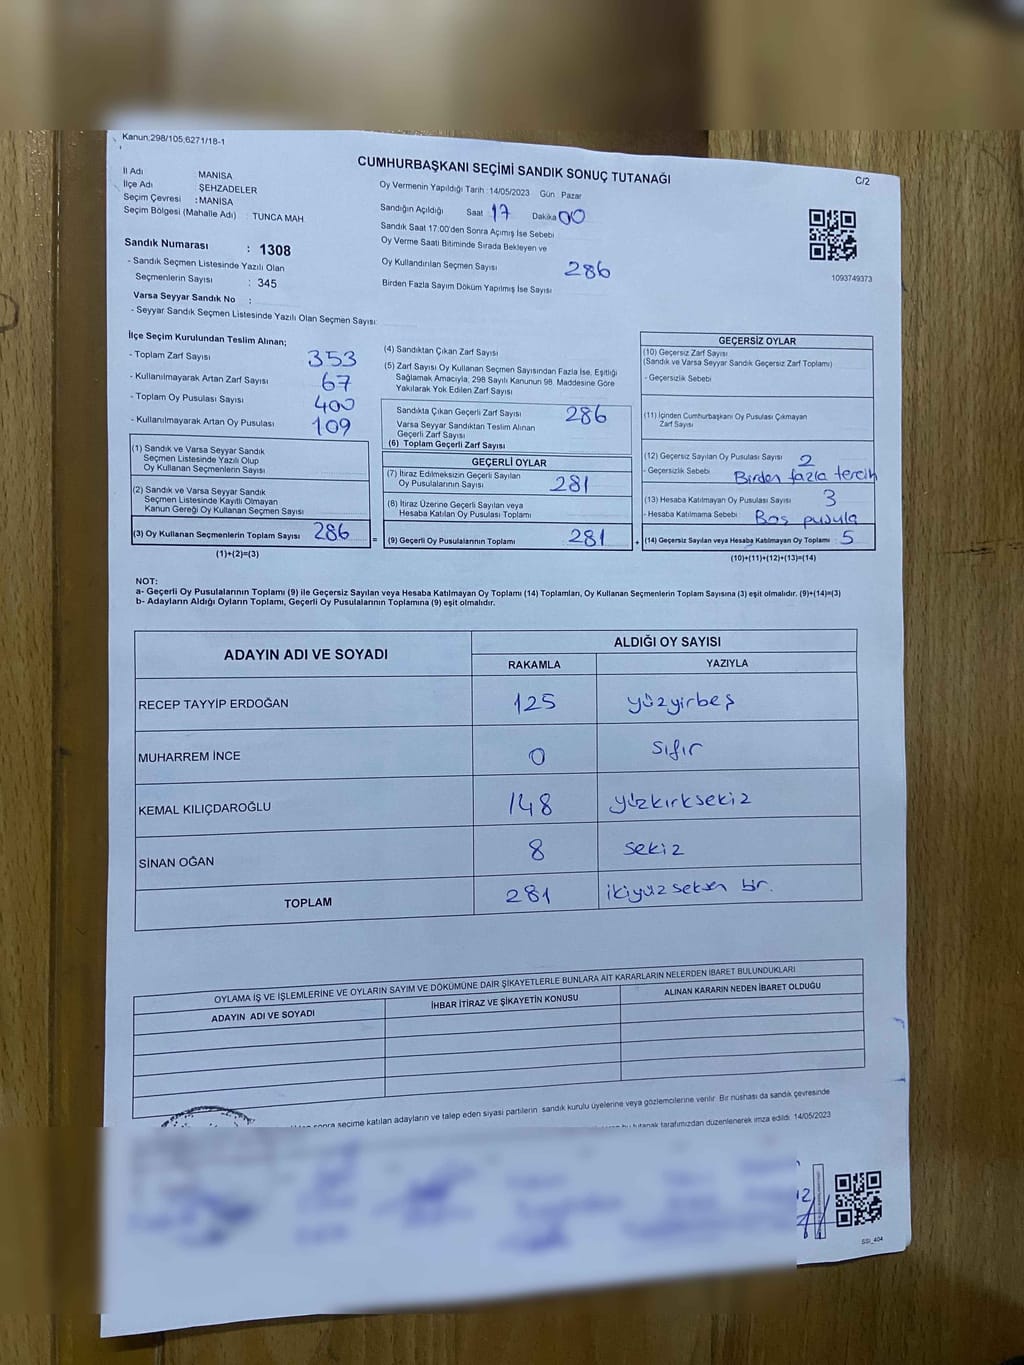 Kanun:298/105,6271/18-1
CUMHURBAŞKANI SEÇİMİ SANDIK SONUÇ TUTANAĞI
C/2
İl Adı MANİSA
İlçe Adı ŞEHZADELER
Seçim Çevresi :MANİSA
Seçim Bölgesi (Mahalle Adı) TUNCA MAH
Sandık Numarası : 1308
- Sandık Seçmen Listesinde Yazılı Olan
Seçmenlerin Sayısı : 345
Varsa Seyyar Sandık No :
- Seyyar Sandık Seçmen Listesinde Yazılı Olan Seçmen Sayısı:
Oy Vermenin Yapıldığı Tarih :14/05/2023 Gün Pazar
Sandığın Açıldığı Saat 17 Dakika 00
Sandık Saat 17:00'den Sonra Açımış İse Sebebi
Oy Verme Saati Bitiminde Sırada Bekleyen ve
Oy Kullandırılan Seçmen Sayısı 286
Birden Fazla Sayım Döküm Yapılmış İse Sayısı
1093749373
İlçe Seçim Kurulundan Teslim Alınan;
- Toplam Zarf Sayısı 353
- Kullanılmayarak Artan Zarf Sayısı 67
- Toplam Oy Pusulası Sayısı 400
- Kullanılmayarak Artan Oy Pusulası 109
(1) Sandık ve Varsa Seyyar Sandık
Seçmen Listesinde Yazılı Olup
Oy Kullanan Seçmenlerin Sayısı
(2) Sandık ve Varsa Seyyar Sandık
Seçmen Listesinde Kayıtlı Olmayan
Kanun Gereği Oy Kullanan Seçmen Sayısı
(3) Oy Kullanan Seçmenlerin Toplam Sayısı 286 =
(1)+(2)=(3)
(4) Sandıktan Çıkan Zarf Sayısı
(5) Zarf Sayısı Oy Kullanan Seçmen Sayısından Fazla İse, Eşitliği
Sağlamak Amacıyla, 298 Sayılı Kanunun 98. Maddesine Göre
Yakılarak Yok Edilen Zarf Sayısı
Sandıkta Çıkan Geçerli Zarf Sayısı 286
Varsa Seyyar Sandıktan Teslim Alınan
Geçerli Zarf Sayısı
(6) Toplam Geçerli Zarf Sayısı
GEÇERLİ OYLAR
(7) İtiraz Edilmeksizin Geçerli Sayılan
Oy Pusulalarının Sayısı 281
(8) İtiraz Üzerine Geçerli Sayılan veya
Hesaba Katılan Oy Pusulası Toplamı
(9) Geçerli Oy Pusulalarının Toplamı 281 +
GEÇERSİZ OYLAR
(10) Geçersiz Zarf Sayısı
(Sandık ve Varsa Seyyar Sandık Geçersiz Zarf Toplamı)
- Geçersizlik Sebebi
(11) İçinden Cumhurbaşkanı Oy Pusulası Çıkmayan
Zarf Sayısı
(12) Geçersiz Sayılan Oy Pusulası Sayısı 2
- Geçersizlik Sebebi Birden fazla tercih
(13) Hesaba Katılmayan Oy Pusulası Sayısı 3
- Hesaba Katılmama Sebebi Boş pusula
(14) Geçersiz Sayılan veya Hesaba Katılmayan Oy Toplamı 5
(10)+(11)+(12)+(13)=(14)
NOT:
a- Geçerli Oy Pusulalarının Toplamı (9) ile Geçersiz Sayılan veya Hesaba Katılmayan Oy Toplamı (14) Toplamları, Oy Kullanan Seçmenlerin Toplam Sayısına (3) eşit olmalıdır. (9)+(14)=(3)
b- Adayların Aldığı Oyların Toplamı, Geçerli Oy Pusulalarının Toplamına (9) eşit olmalıdır.
ADAYIN ADI VE SOYADI ALDIĞI OY SAYISI
RAKAMLA YAZIYLA
RECEP TAYYİP ERDOĞAN 125 yüzyirbeş
MUHARREM İNCE 0 sıfır
KEMAL KILIÇDAROĞLU 148 yüzkırksekiz
SİNAN OĞAN 8 sekiz
TOPLAM 281 ikiyüz seksen bir.
OYLAMA İŞ VE İŞLEMLERİNE VE OYLARIN SAYIM VE DÖKÜMÜNE DAİR ŞİKAYETLERLE BUNLARA AİT KARARLARIN NELERDEN İBARET BULUNDUKLARI
ADAYIN ADI VE SOYADI İHBAR İTİRAZ VE ŞİKAYETİN KONUSU ALINAN KARARIN NEDEN İBARET OLDUĞU
sonra seçime katılan adayların ve talep eden siyasi partilerin sandık kurulu üyelerine veya gözlemcilerine verilir. Bir nüshası da sandık çevresinde
tutanak tarafımızdan düzenlenerek imza edildi. 14/05/2023
12
SSI_404